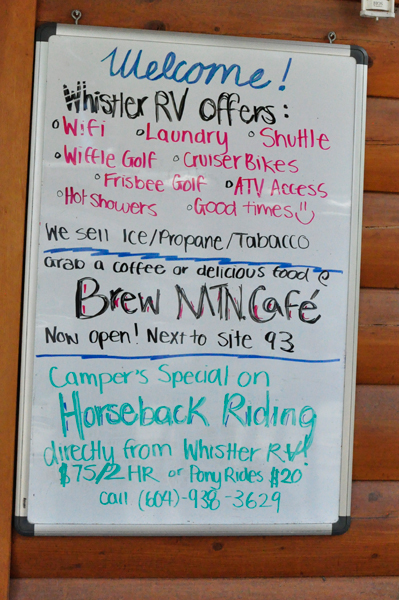 Welcome!
Whistler RV Offers:
Wifi Laundry Shuttle
Wiffle Golf Cruiser Bikes
Frisbee Golf ATV Access
Hot Showers Good times
We sell Ice/Propane/Tabacco
Grab a coffee or delicious food @
Brew MTN. Café
Now open! Next to Site 93
Camper's Special on
Horseback Riding
directly from Whistler RV!
$75/2 HR or Pony Rides $20
call (604)-938-3629